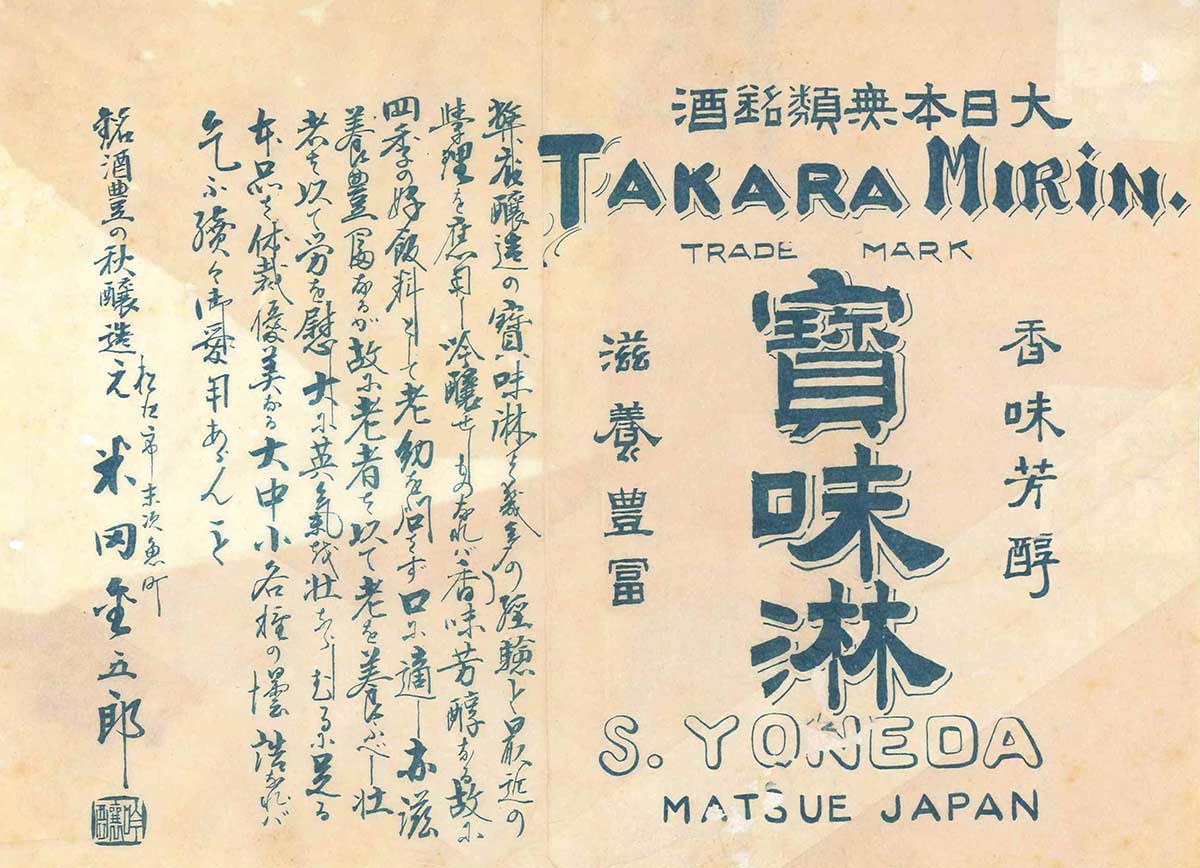 大日本無類銘酒
TAKARA MIRIN.
TRADE MARK
香味芳醇
寳味淋
滋養豊冨
S. YONEDA
MATSUE JAPAN
弊店醸造の寳味淋は幾多の経験と最近の
學理を應用し吟醸せしものなれバ香味芳醇なる故に
四季の好飯料として老幼を問はず口に適し亦滋
養豊冨なるが故に老者を以て老を養ふべし壮
者を以て労を慰し大に英氣を壮ならしむるに足る
本品は体裁優美なる大中小各種の壜詰なれバ
乞ふ續々御愛用あらんこと
松江市末次魚町
銘酒豊の秋醸造元 米田金五郎
吟醸